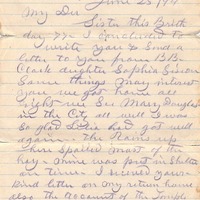 June 25 191
My Dear
Sister this Birth
day 77 - I concluded to
write you & send a
letter to you from BB
Clark daughter Sophia Gibson
Some things may interest
you we got home all
right - we See Mary Douglas
in the City all well I was
So glad had got well
again - The Rains
here Spoiled most of the
hey - Mine was put in
on time I received your
Kind letter on my return home
also the account of the Temple